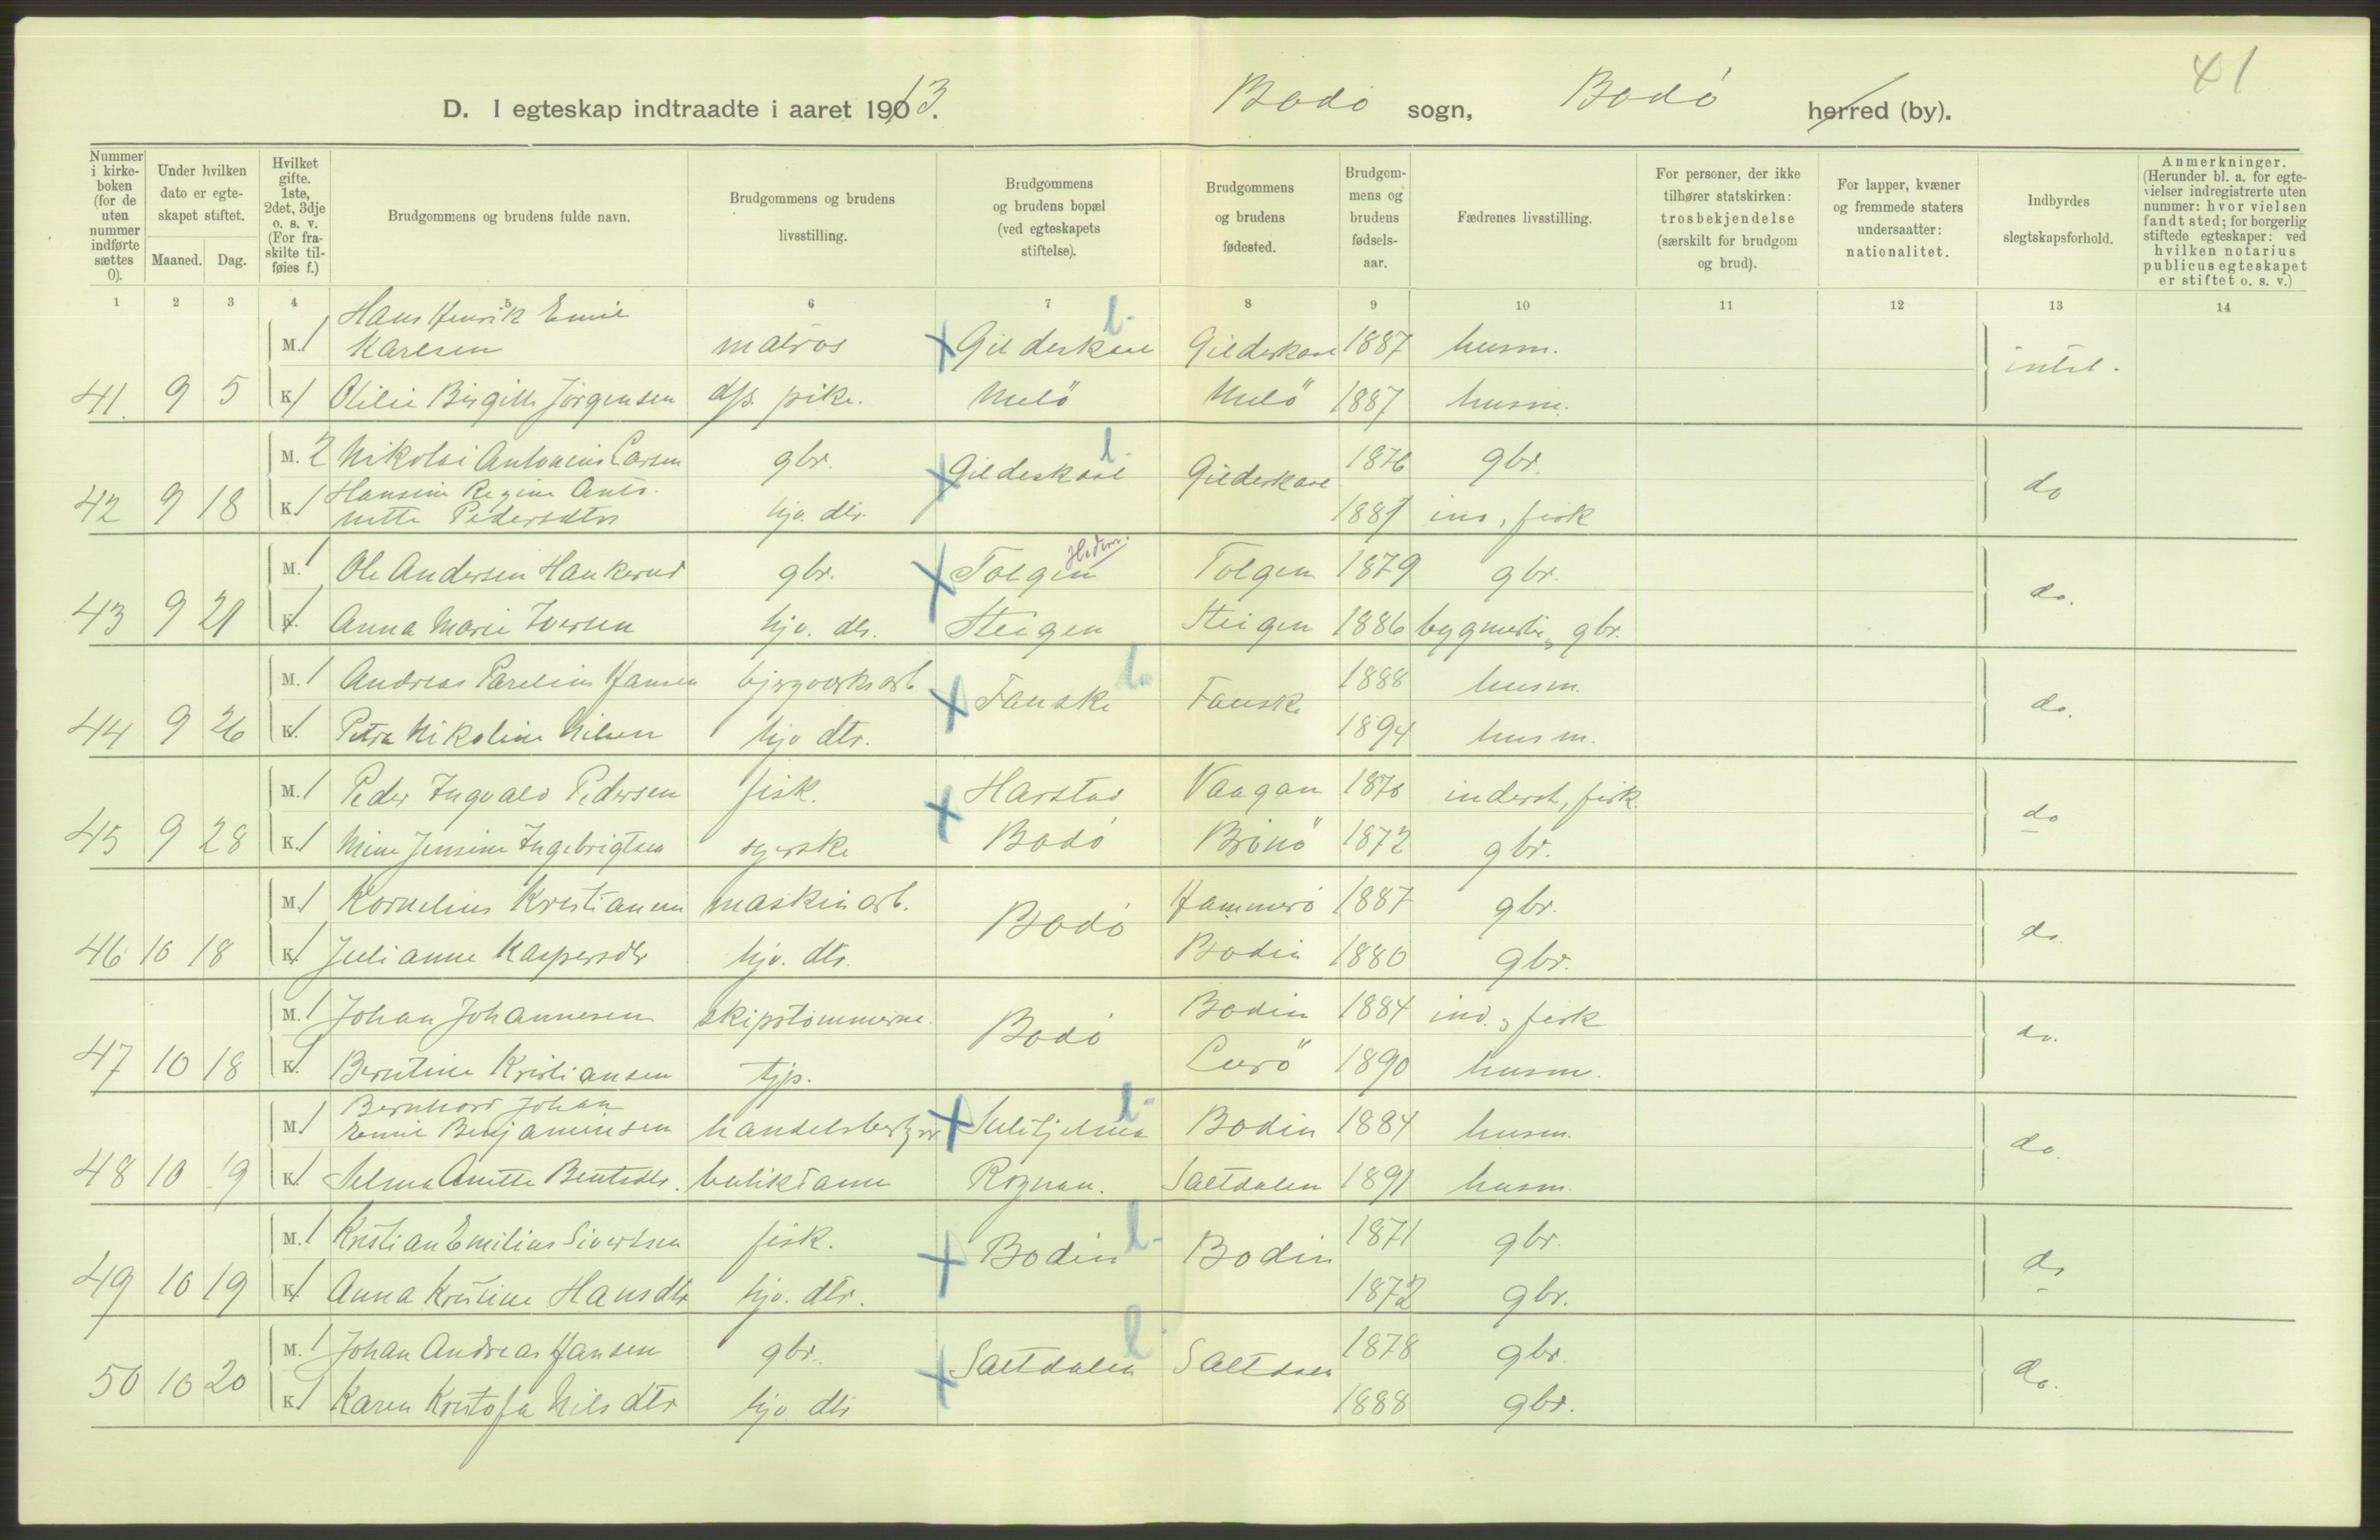 41
D. I egteskap indtraadte i aaret 1913. Bodø sogn, Bodø herred (by).
Nummer i kirkeboken (for de uten nummer indførte sættes 0).
Under hvilken dato er egteskapet stiftet.
Maaned. Dag.
Hvilket gifte. 1ste, 2det, 3dje o. s. v. (For fraskilte tilføies f.)
Brudgommens og brudens fulde navn.
Brudgommens og brudens livsstilling.
Brudgommens og brudens bopæl (ved egteskapets stiftelse).
Brudgommens og brudens fødested.
Brudgommens og brudens fødselsaar.
Fædrenes livsstilling.
For personer, der ikke tilhører statskirken: trosbekjendelse (særskilt for brudgom og brud).
For lapper, kvæner og fremmede staters undersaatter: nationalitet.
Indbyrdes slegtskapsforhold.
Anmerkninger. (Herunder bl. a. for egtevielser indregistrerte uten nummer: hvor vielsen fandt sted; for borgerlig stiftede egteskaper: ved hvilken notarius publicus egteskapet er stiftet o. s. v.)
1 2 3 4 5 6 7 8 9 10 11 12 13 14
M. 1 Hans Henrik Emil
Karlsen matros Gildeskaal Gildeskaal 1887 husm. intet.
41. 9 5 K. 1 Otilie Birgitte Jørgensen pike. Melö Melö 1887 husm.
M. 2 Nikolai Antonius Larsen gbr. Gildeskaal Gildeskaal 1876 gbr. do
42 9 18 K. 1 Hansine Regine Anto-
nette Pedersdtr hjv. dtr. 1887 ind, fisk
Hedm.
M. 1 Ole Andersen Haukerud gbr. Tolgen Tolgen 1879 gbr. do.
43 9 21 K. 1 Anna Marie Iversen hjv. dtr. Steigen Steigen 1886 bygmester, gbr.
M. 1 Andreas Parelius Hansen bjergverksarb Fauske Fauske 1888 husm. do.
44 9 26 K. 1 Petra Nikoline Nilsen hjv dtr. 1894 husm.
M. 1 Peder Ingvald Pedersen fisk. Harstad Vaagan 1876 inderst, fisk. do
45 9 28 K. 1 Mine Jensine Ingebrigtsen syerske Bodø Brönö 1872 gbr.
M. 1 Kornelius Kristiansen maskinarb. Bodø Hammerø 1887 gbr. do.
46 10 18 K. 1 Julianne Kaspersdtr hjv. dtr. Bodin 1880 gbr.
M. 1 Johan Johannesen skipstømmerm. Bodø Bodin 1884 ind., fisk do.
47 10 18 K. 1 Berntine Kristiansen tjp. Lurö 1890 husm.
M. 1 Bernhard Johan
Emil Benjaminsen handelsbestyrer Sulitjelma Bodin 1884 husm. do.
48 10 19 K. 1 Selma Anette Bentsdtr. butikdame Rognan. Saltdalen 1891 husm.
M. 1 Kristian Emilius Sivertsen fisk. Bodin Bodin 1871 gbr. do
49 10 19 K. 1 Anna Kristine Hansdtr hjv. dtr. 1872 gbr.
M. 1 Johan Andreas Hansen gbr. Saltdalen Saltdalen 1878 gbr do.
50 10 20 K. 1 Karen Kristofa Nilsdtr hjv. dtr 1888 gbr.